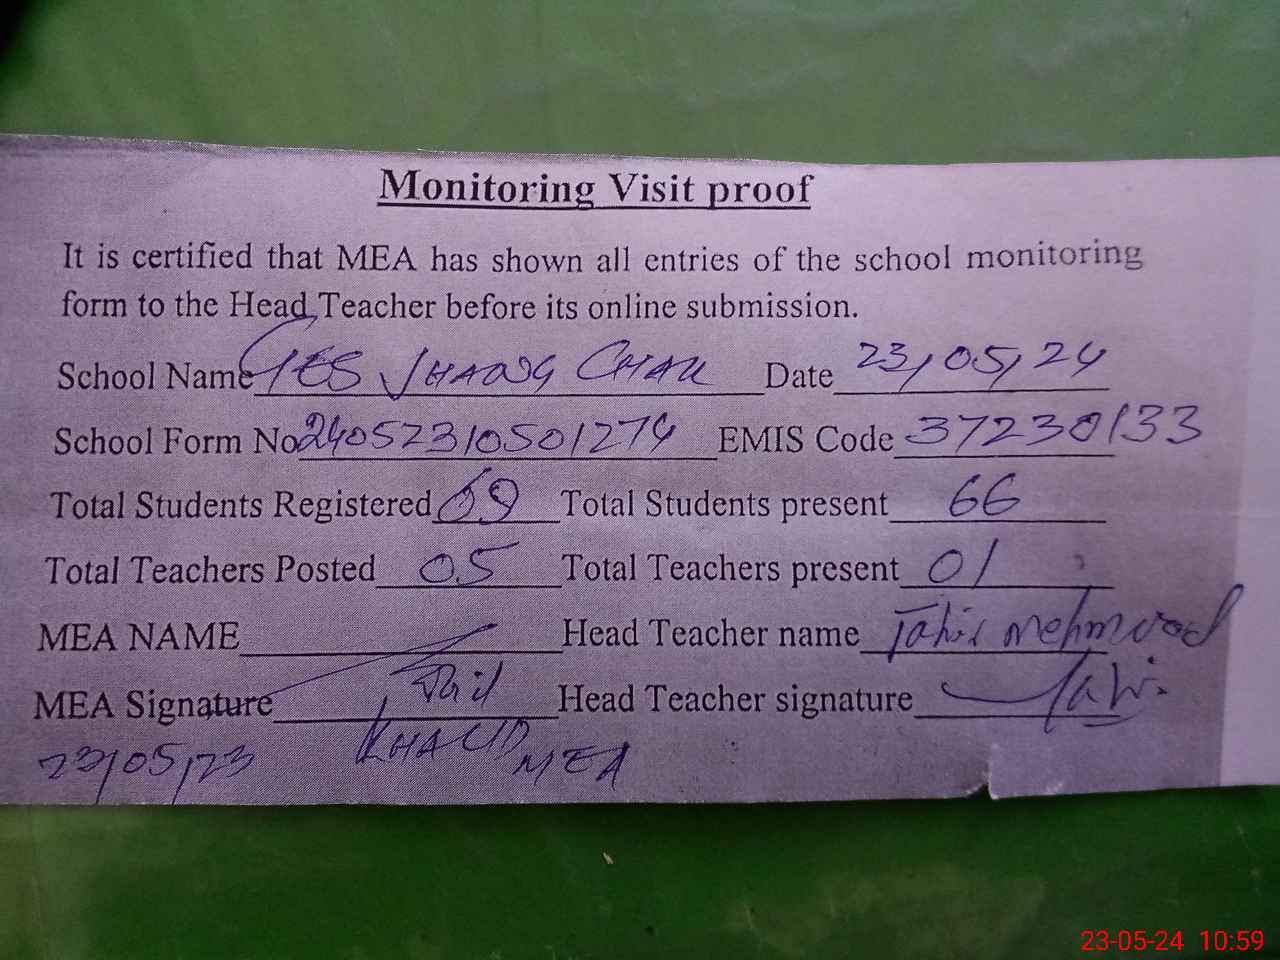 Monitoring Visit proof
It is certified that MEA has shown all entries of the school monitoring
form to the Head Teacher before its online submission.
School Name GES JHANG CHAK Date 23/05/24
School Form No 24052310501274 EMIS Code 37230133
Total Students Registered 69 Total Students present 66
Total Teachers Posted 05 Total Teachers present 01
MEA NAME Head Teacher name Tahir Mehmood
MEA Signature Head Teacher signature Tahir
23/05/23 KHALID MEA
23-05-24 10:59